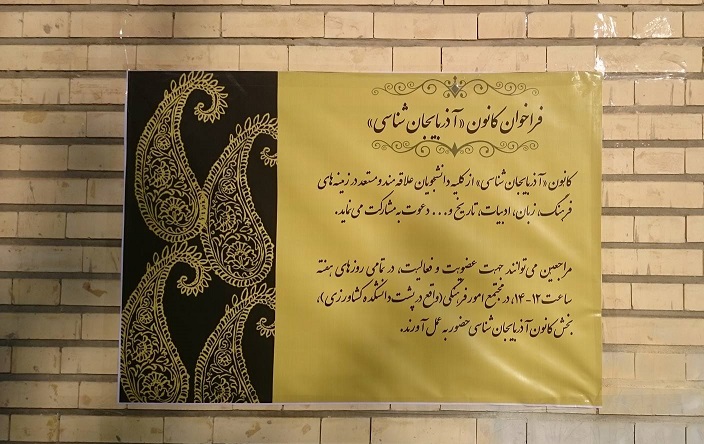 فراخوان کانون «آذربایجان شناسی»
کانون «آذربایجان شناسی» از کلیه دانشجویان علاقه مند و مستعد در زمینه های
فرهنگ، زبان، ادبیات، تاریخ و... دعوت به مشارکت می نماید.
مراجعین می توانند جهت عضویت و فعالیت، در تمامی روزهای هفته
ساعت ۱۲-۱۴، در مجتمع امور فرهنگی (واقع در پشت دانشکده کشاورزی)،
بخش کانون آذربایجان شناسی حضور به عمل آورند.